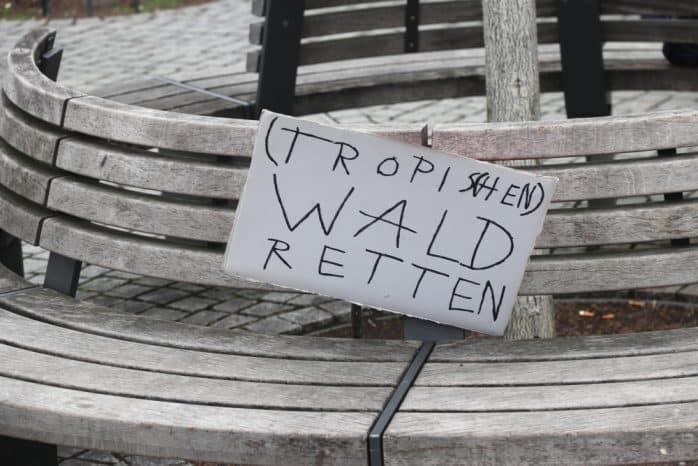 (TROPISCHEN)
WALD
RETTEN